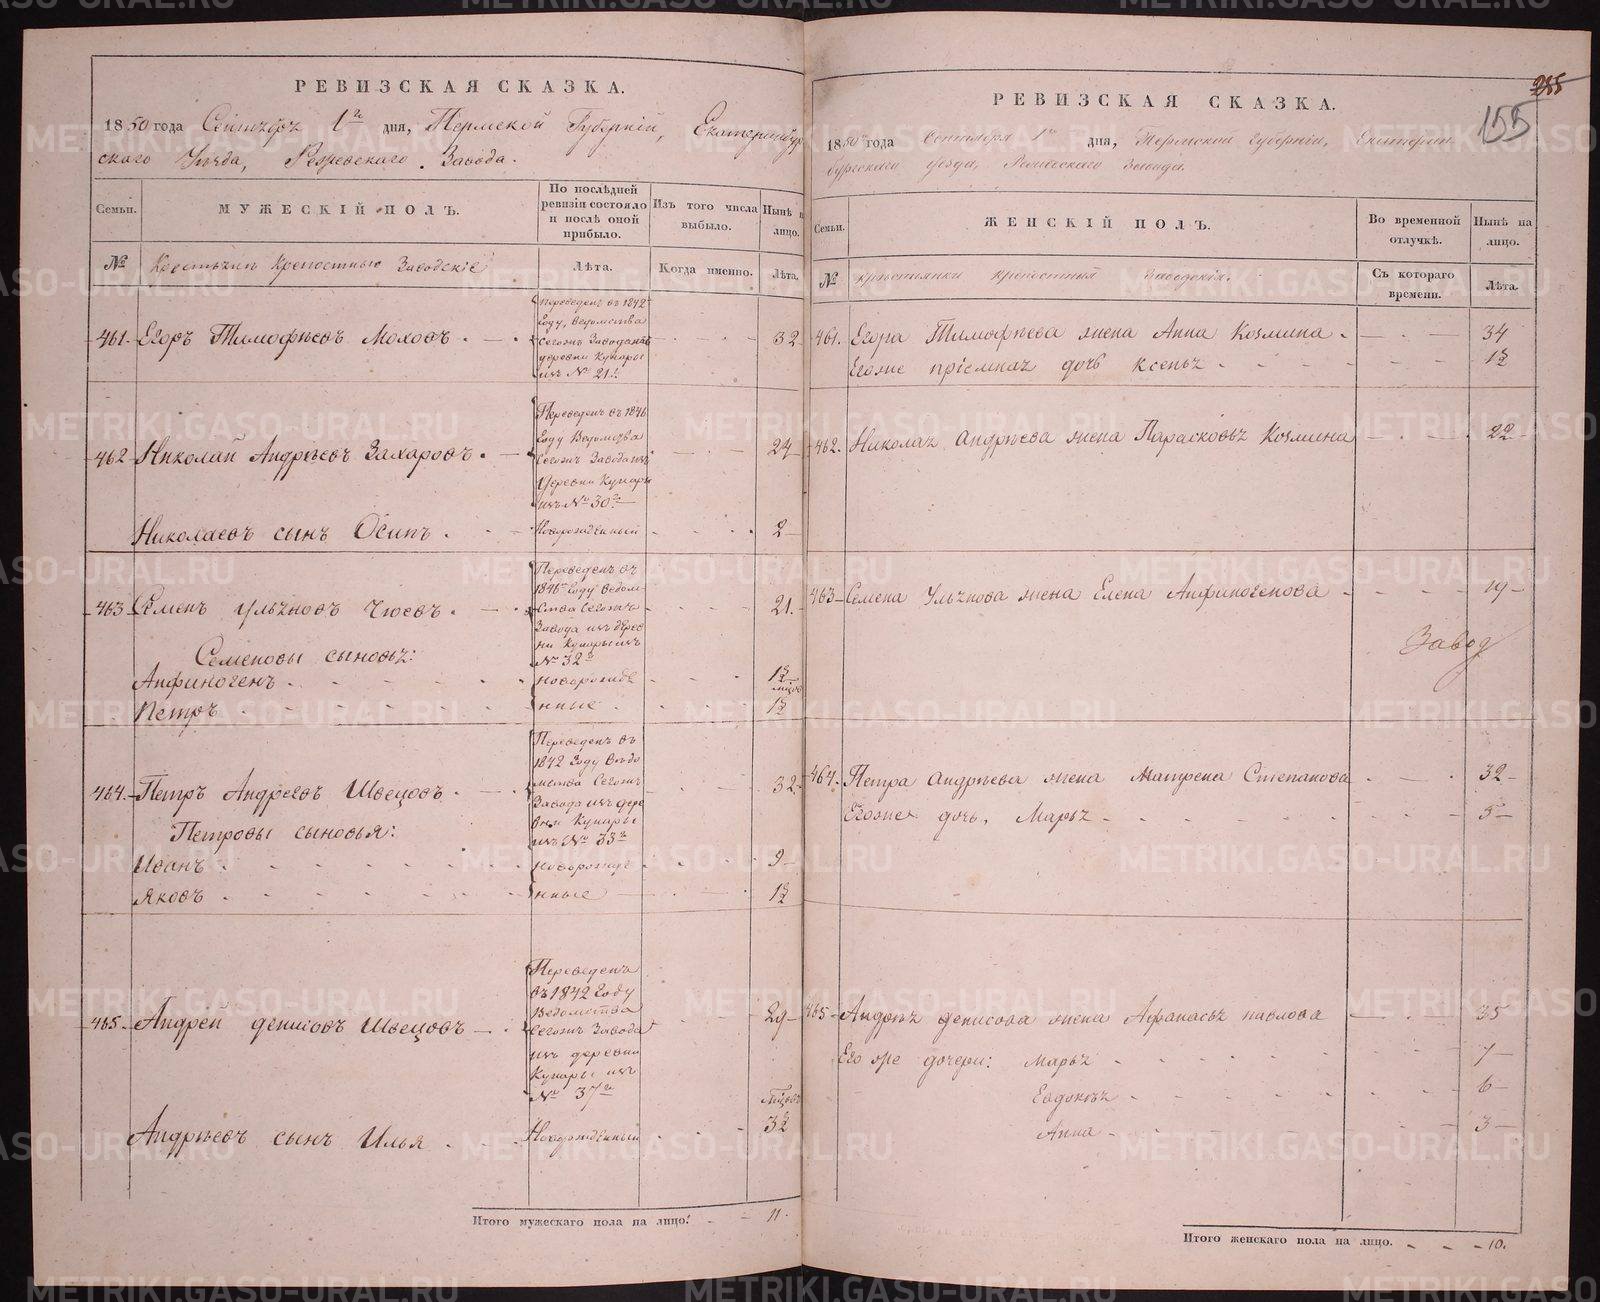 РЕВИЗСКАЯ СКАЗКА.
1850 года Сентября 1го дня, Пермской Губернiи, Екатеринбург
скаго Уѣзда, Режевскаго Завода.
Семьи.
МУЖЕСКІЙ ПОЛЪ.
По послѣдней ревизіи состояло и послѣ оной прибыло.
Изъ того числа выбыло.
Нынѣ н лицо.
№
Крестьянъ Крепостныхъ Заводскiе
Лѣта.
Когда именно.
Лѣта.
461. Егоръ Тимофѣевъ Моховъ. 32
Переведенъ въ 1842
Году, Ведомства
Сегожъ Завода изъ
деревни Купары
изъ № 21го
462 Николай Андрѣевъ Захаровъ. 24
Переведенъ въ 1846
Году Ведомства
Сегожъ Завода изъ
Деревни Купары
изъ № 30го
Николаевъ сынъ Осипъ. Новорожденный 2
463 Семенъ Ульяновъ Чюевъ. 21.
Переведенъ въ
1846 Году Ведом
ства Сегожъ
Завода изъ дерев
ни Купары изъ
№ 32го
Семеновы сыновья:
Анфиногенъ новорожде
месяц
Петръ нные
464. Петръ Андреевъ Швецовъ. 32
Переведенъ въ
1842 Году Ведо
мства Сегожъ
Завода изъ дере
вни Купары
изъ № 33го
Петровы сыновья:
Иванъ новорожде 9
Яковъ нные
465 Андрей денисовъ Швецовъ 29
Переведенъ
въ 1842 Году
Ведомства
Сегожъ Завода
изъ деревни
Купары изъ
№ 37го
Андрѣевъ сынъ Илья Новорожденный
Итого мужескаго пола на лицо. 11.
155
РЕВИЗСКАЯ СКАЗКА.
1850го года Сентября 1го дня, Пермской Губернiи, Екатерин
бургскаго уезда, Режевскаго Завода.
Семьи.
ЖЕНСКІЙ ПОЛЪ.
Во временной отлучкѣ.
Нынѣ на лицо.
№
крестьянки крепостныя Заводскiя.
Съ котораго времени.
Лѣта.
461. Егора Тимофѣева жена Анна Козмина 34
Егоже прiемная дочь Ксенья
462. Николая Андрѣева жена Парасковья Козмина 22
463 Семена Ульянова жена Елена Анфиногенова 19
Завод
464. Петра Андрѣева жена Матрена Степанова 32
Егоже дочь, Марья 5
465 Андрея денисова жена Афанасья павлова 35
Его же дочери: Марья 7
Евдокея 6
Анна 3
Итого женскаго пола на лицо. 10.
METRIKI.GASO-URAL.RU